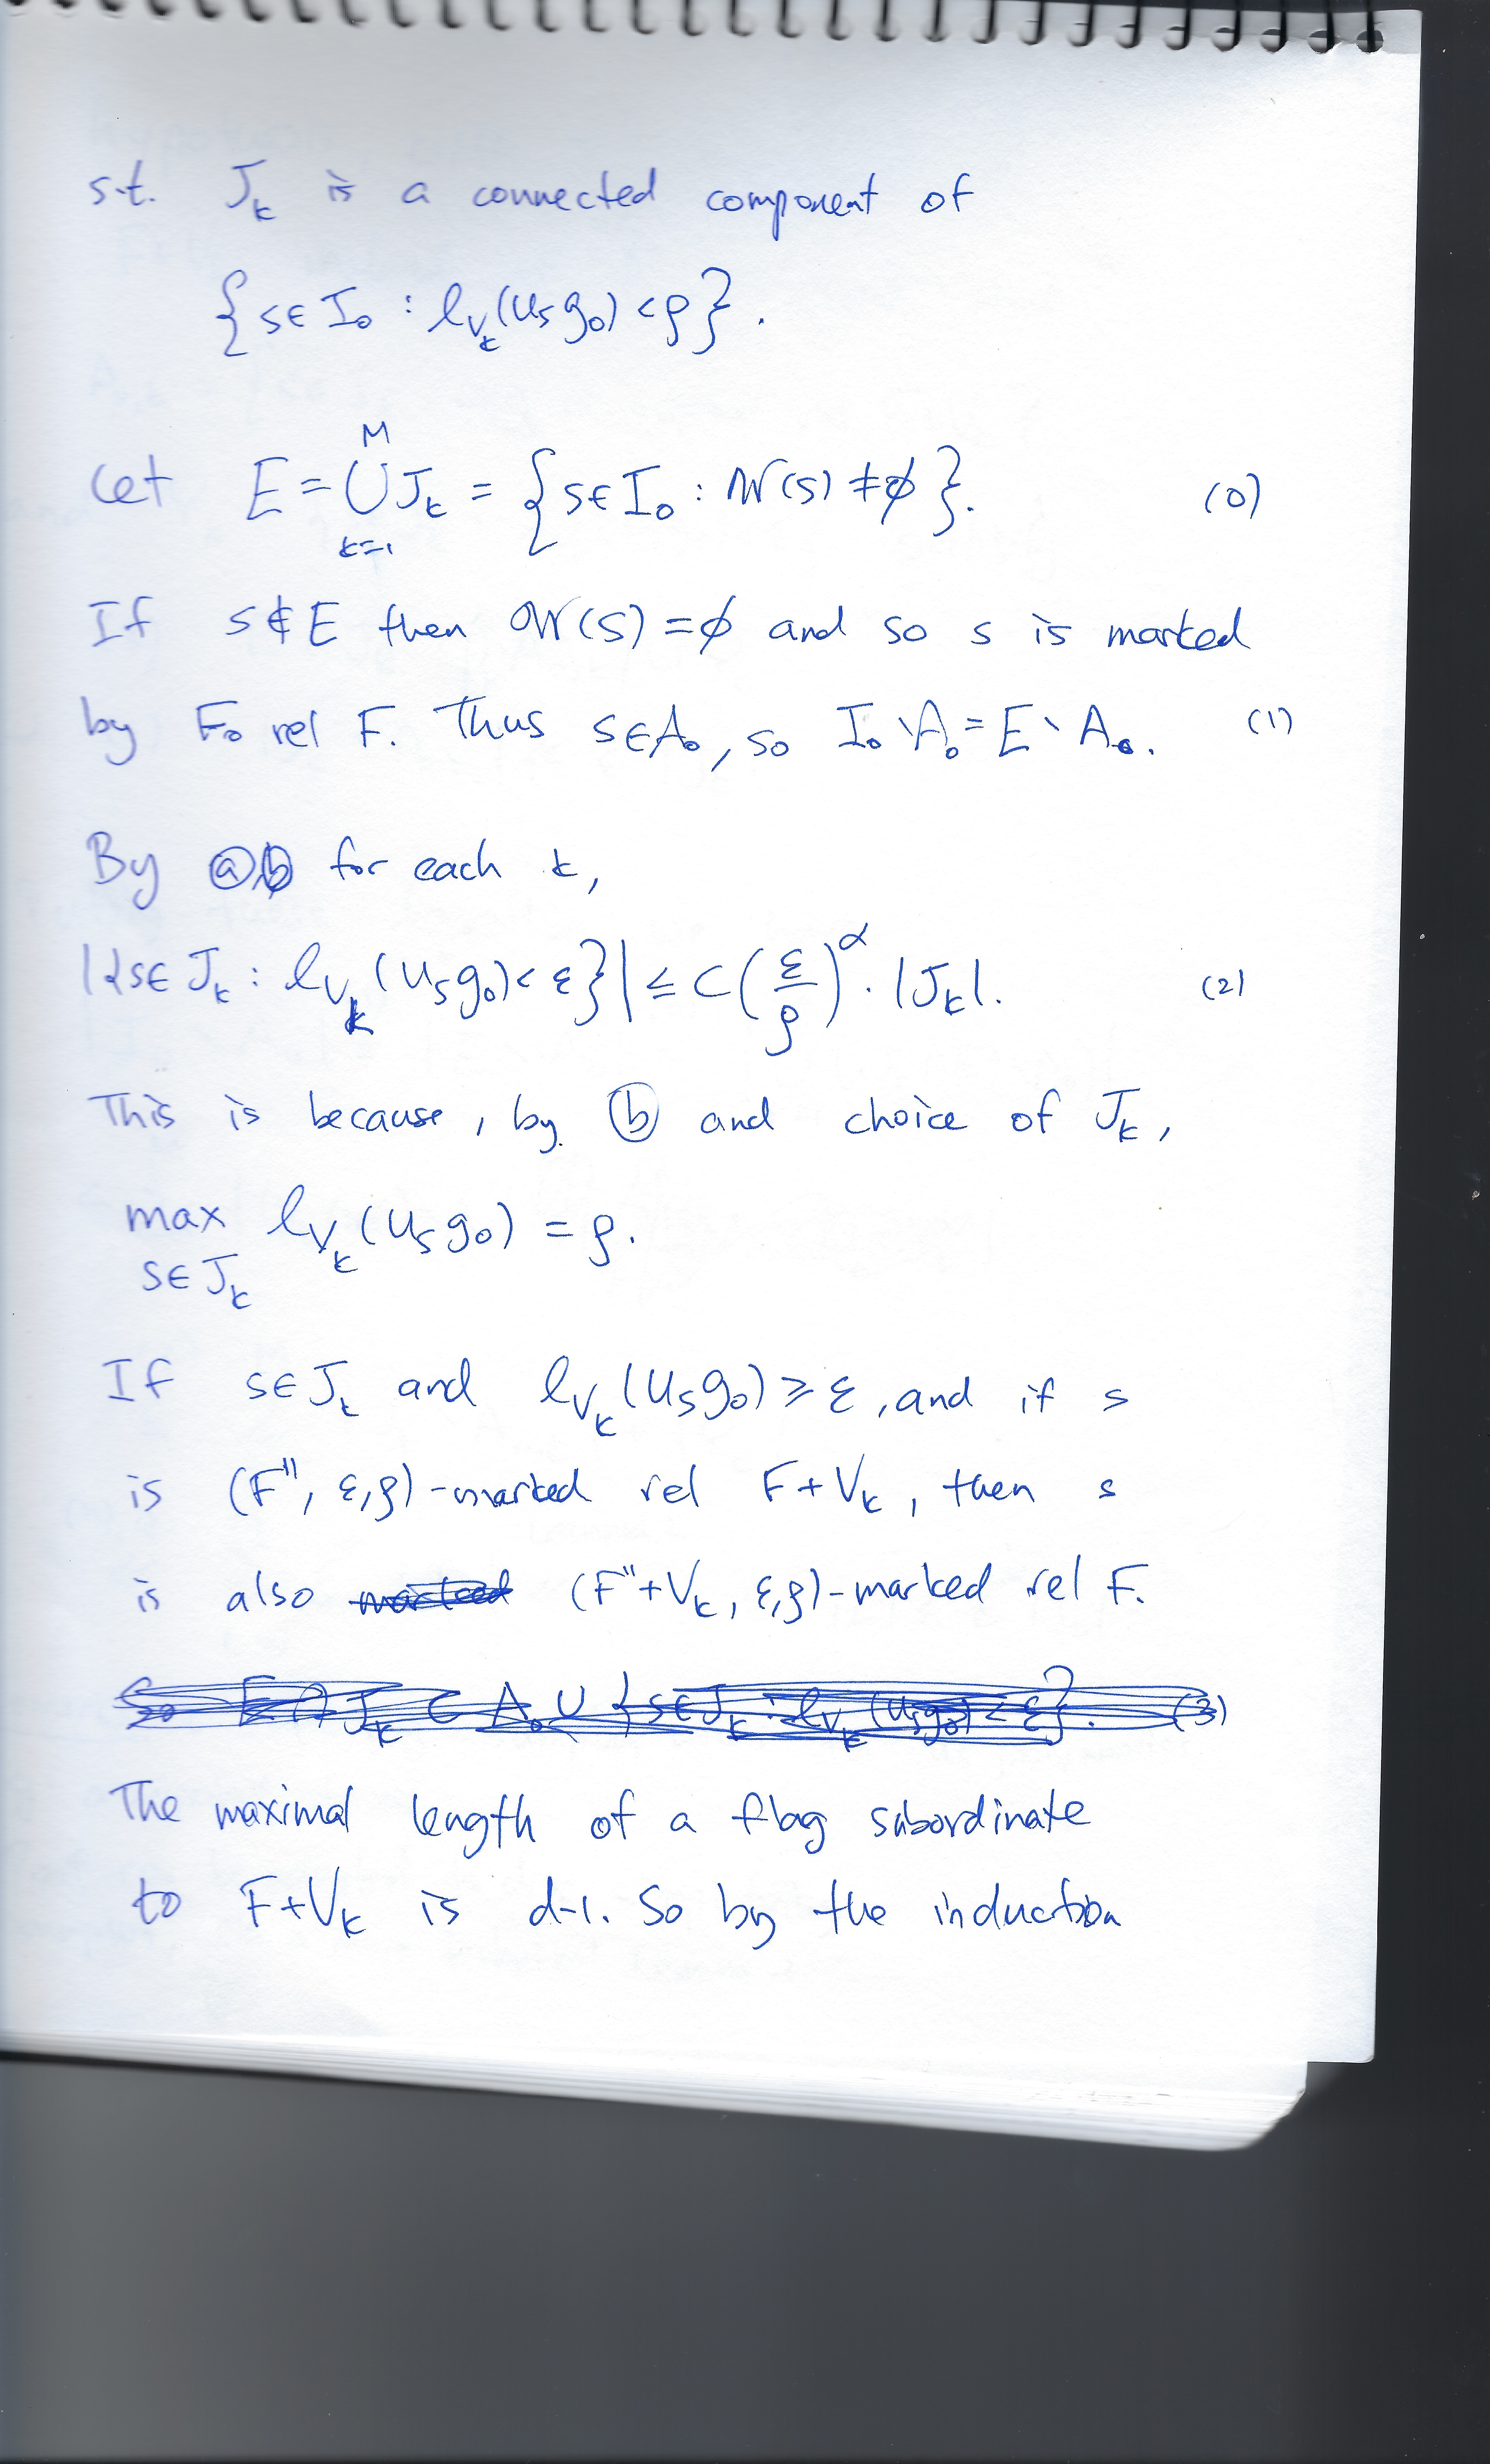 s.t. J_k is a connected component of
{s∈I₀ : ℓ_{V_k}(u_s g₀) < ρ}.
Let E = ⋃_{k=1}^{M} J_k = {s∈I₀ : 𝒲(s) ≠ ∅}. (0)
If s∉E then 𝒲(s) = ∅ and so s is marked
by F₀ rel F. Thus s∈A₀, so I₀∖A₀ = E∖A₀. (1)
By ⓐ,ⓑ for each k,
|{s∈J_k : ℓ_{V_k}(u_s g₀) < ε}| ≤ C(ε/ρ)^α · |J_k|. (2)
This is because, by ⓑ and choice of J_k,
max_{s∈J_k} ℓ_{V_k}(u_s g₀) = ρ.
If s∈J_k and ℓ_{V_k}(u_s g₀) ≥ ε, and if s
is (F'', ε, ρ)-marked rel F+V_k, then s
is also marked (F''+V_k, ε, ρ)-marked rel F.
So E∩J_k ⊂ A₀ ∪ {s∈J_k : ℓ_{V_k}(u_s g₀) < ε}. (3)
The maximal length of a flag subordinate
to F+V_k is d-1. So by the induction